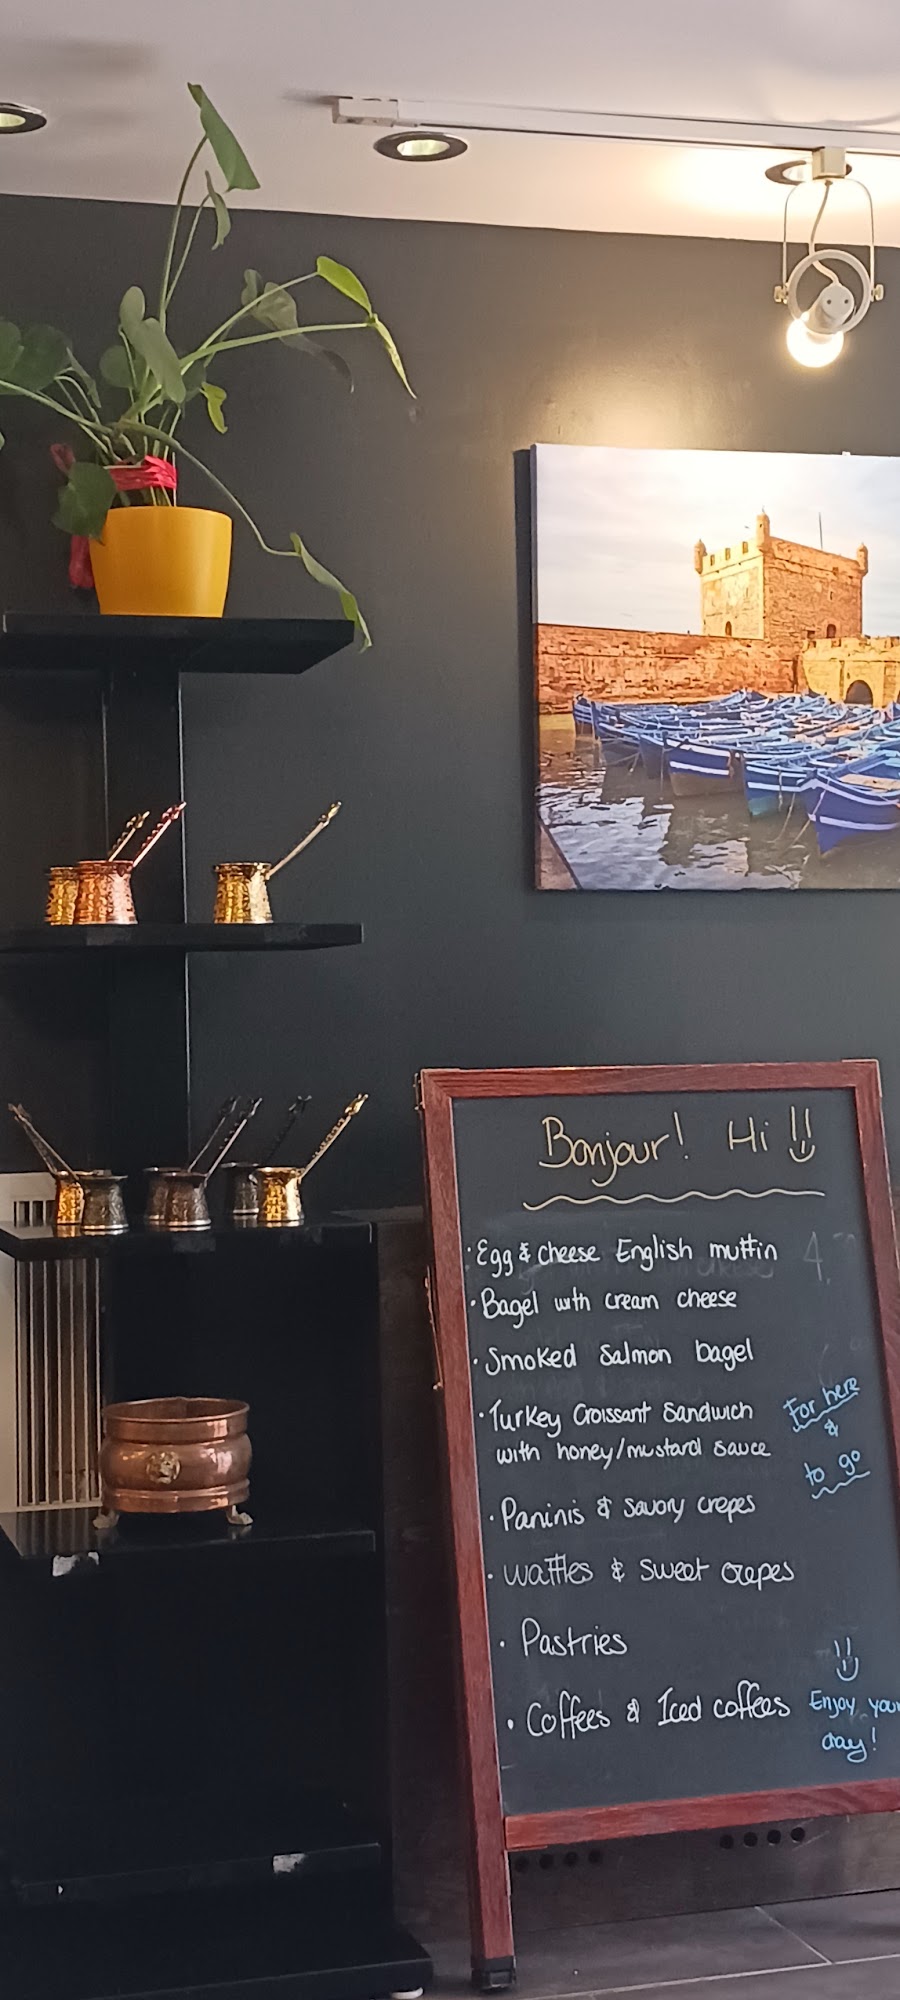 Bonjour! Hi
· Egg & cheese English muffin
· Bagel with cream cheese
· Smoked Salmon bagel
· Turkey Croissant Sandwich
with honey/mustard sauce
For here
&
to go
· Paninis & savory crepes
· Waffles & sweet crepes
· Pastries
· Coffees & Iced coffees
Enjoy your
day!